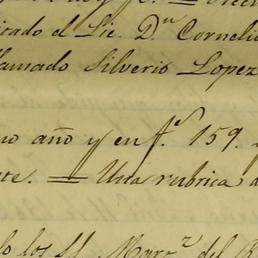 cado el Lic. D.ⁿ Corneli
llamado Silverio Lopez
mo año y en f.ˢ 159.
te. = Una rubrica
los SS. Marq.ᶻ del